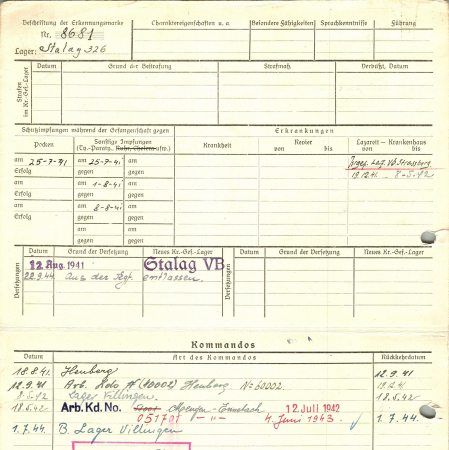 Beschriftung der Erkennungsmarke
Nr. 8681
Lager: Stalag 326
Charaktereigenschaften u. a.
Besondere Fähigkeiten
Sprachkenntnisse
Führung
Strafen im Kr.-Gef.-Lager
Datum
Grund der Bestrafung
Strafmaß
Verbüßt, Datum
Schutzimpfungen während der Gefangenschaft gegen
Erkrankungen
Pocken
Sonstige Impfungen
(Ty.-Paraty., Ruhr, Cholera usw.)
Krankheit
Revier
von bis
Lazarett — Krankenhaus
von bis
am 25-7-41 am 25-7-41 am
Erfolg gegen gegen
am am 1-8-41 am
Erfolg gegen gegen
am am 8-8-41 am
Erfolg gegen gegen
am am
gegen gegen
Laz. Vb. Strassburg
19.12.41. 8-5.42
Versetzungen
Datum
Grund der Versetzung
Neues Kr.-Gef.-Lager
Versetzungen
Datum
Grund der Versetzung
Neues Kr.-Gef.-Lager
12 Aug. 1941 Stalag VB
22.9.44. Aus der Kgf. entlassen.
Kommandos
Datum
Art des Kommandos
Rückkehrdatum
18.8.41. Heuberg 12.9.41
12.9.41 Arb. Kdo (40002) Heuberg No 60002. 19.12.41
8.5.42 Lager Villingen. 18.5.42
18.5.42 Arb.Kd.No. Mengen-Ennetach 12 Juli 1942
051701 — „ — 4. Juni 1943. 1.7.44.
1.7.44 B. Lager Villingen